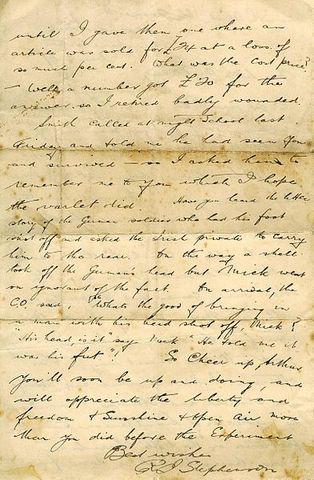 until I gave them one where an
article was sold for £24 at a loss of
so much per cent. What was the cost price?
– Well a number got £70 for the
answer, so I retired badly wounded.
Smith called at night School last
and told me he had seen You
and survived – so I asked him to
remember me to You which I hope
the varlet did. Have you heard the little
story of the German soldier who had his foot
shot off and asked the Irish private to carry
him to the rear. On the way a shell
took off the German's head but Mick went
on ignorant of the fact. On arrival, the
C.O. said "Whats the good of bringing in
a man with his head shot off, Mick?
His head, is it say Mick "He told me it
was his foot".
So Cheer up, Arthur
You'll soon be up and doing, and
will appreciate the liberty and
freedom & Sunshine & Open air more
than You did before the Experiment
Best wishes
R J Stephenson